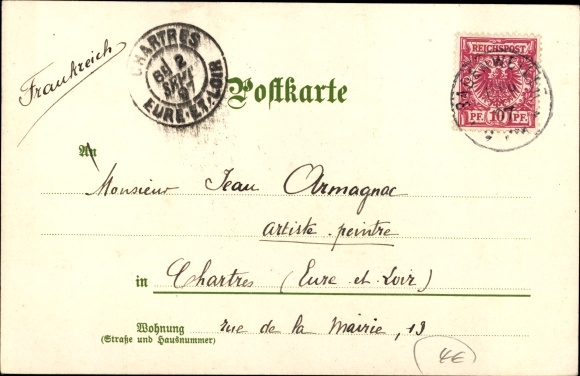 Frankreich
CHARTRES
EURE-ET-LOIR
Postkarte
REICHSPOST
PF. 10 PF.
An
Monsieur Jean Armagnac
artiste-peintre
in Chartres (Eure et Loir)
Wohnung rue de la Mairie, 13
(Straße und Hausnummer)
4€